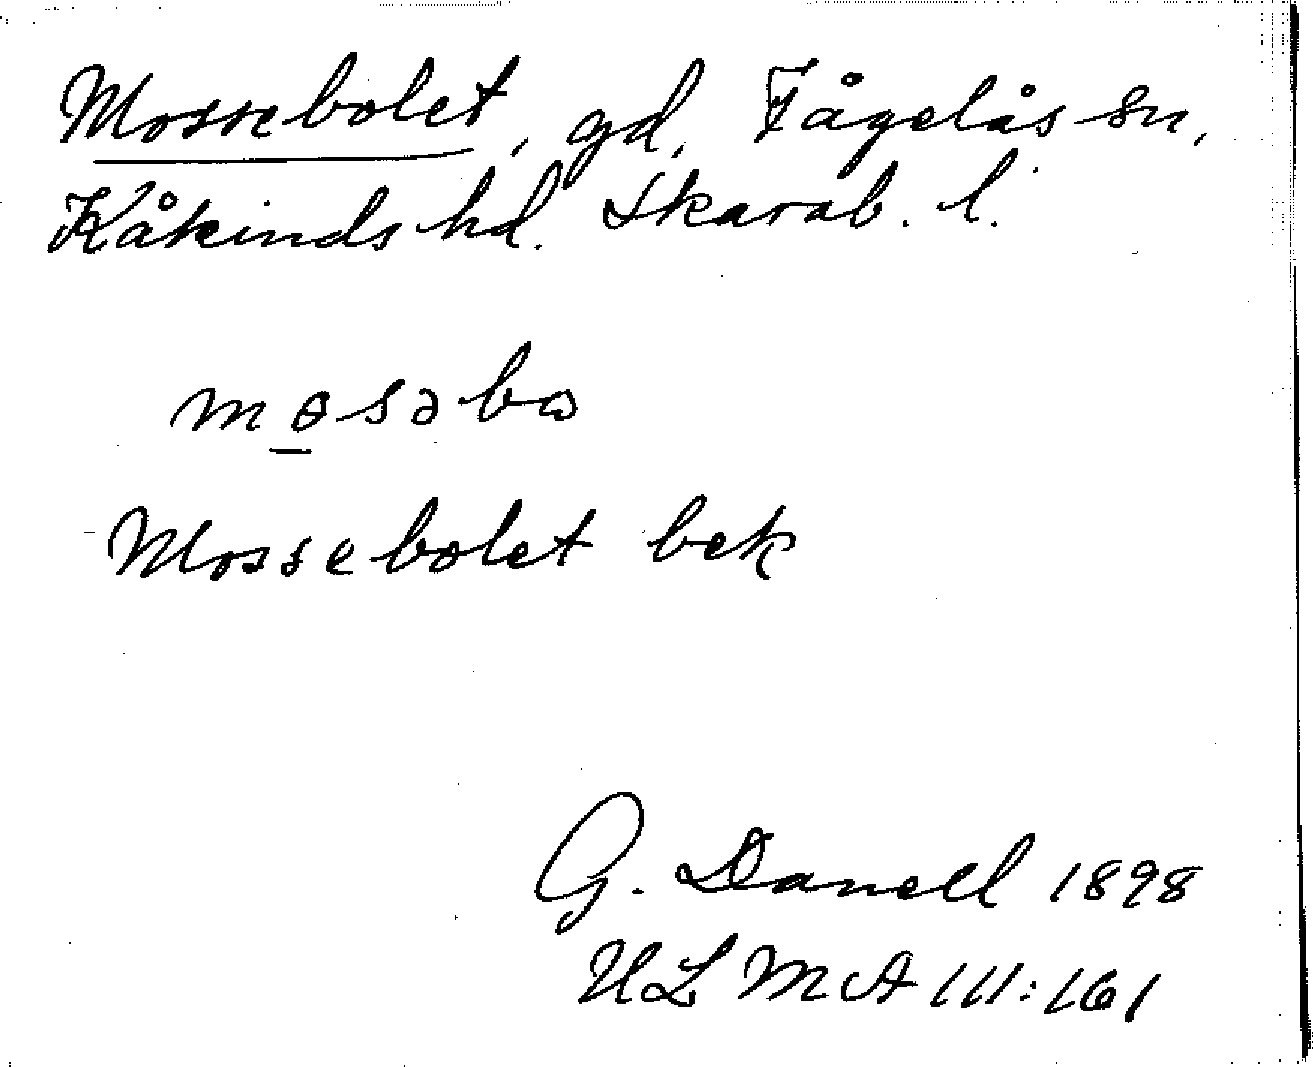 Mossebolet, gd, Fågelås sn,
Kåkinds hd. Skarab. l.
mɵsəbɷ
Mossebolet bek
G. Danell 1898
ULMA 111:161